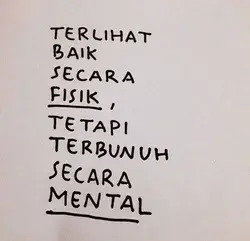 TERLIHAT
BAIK
SECARA
FISIK,
TETAPI
TERBUNUH
SECARA
MENTAL